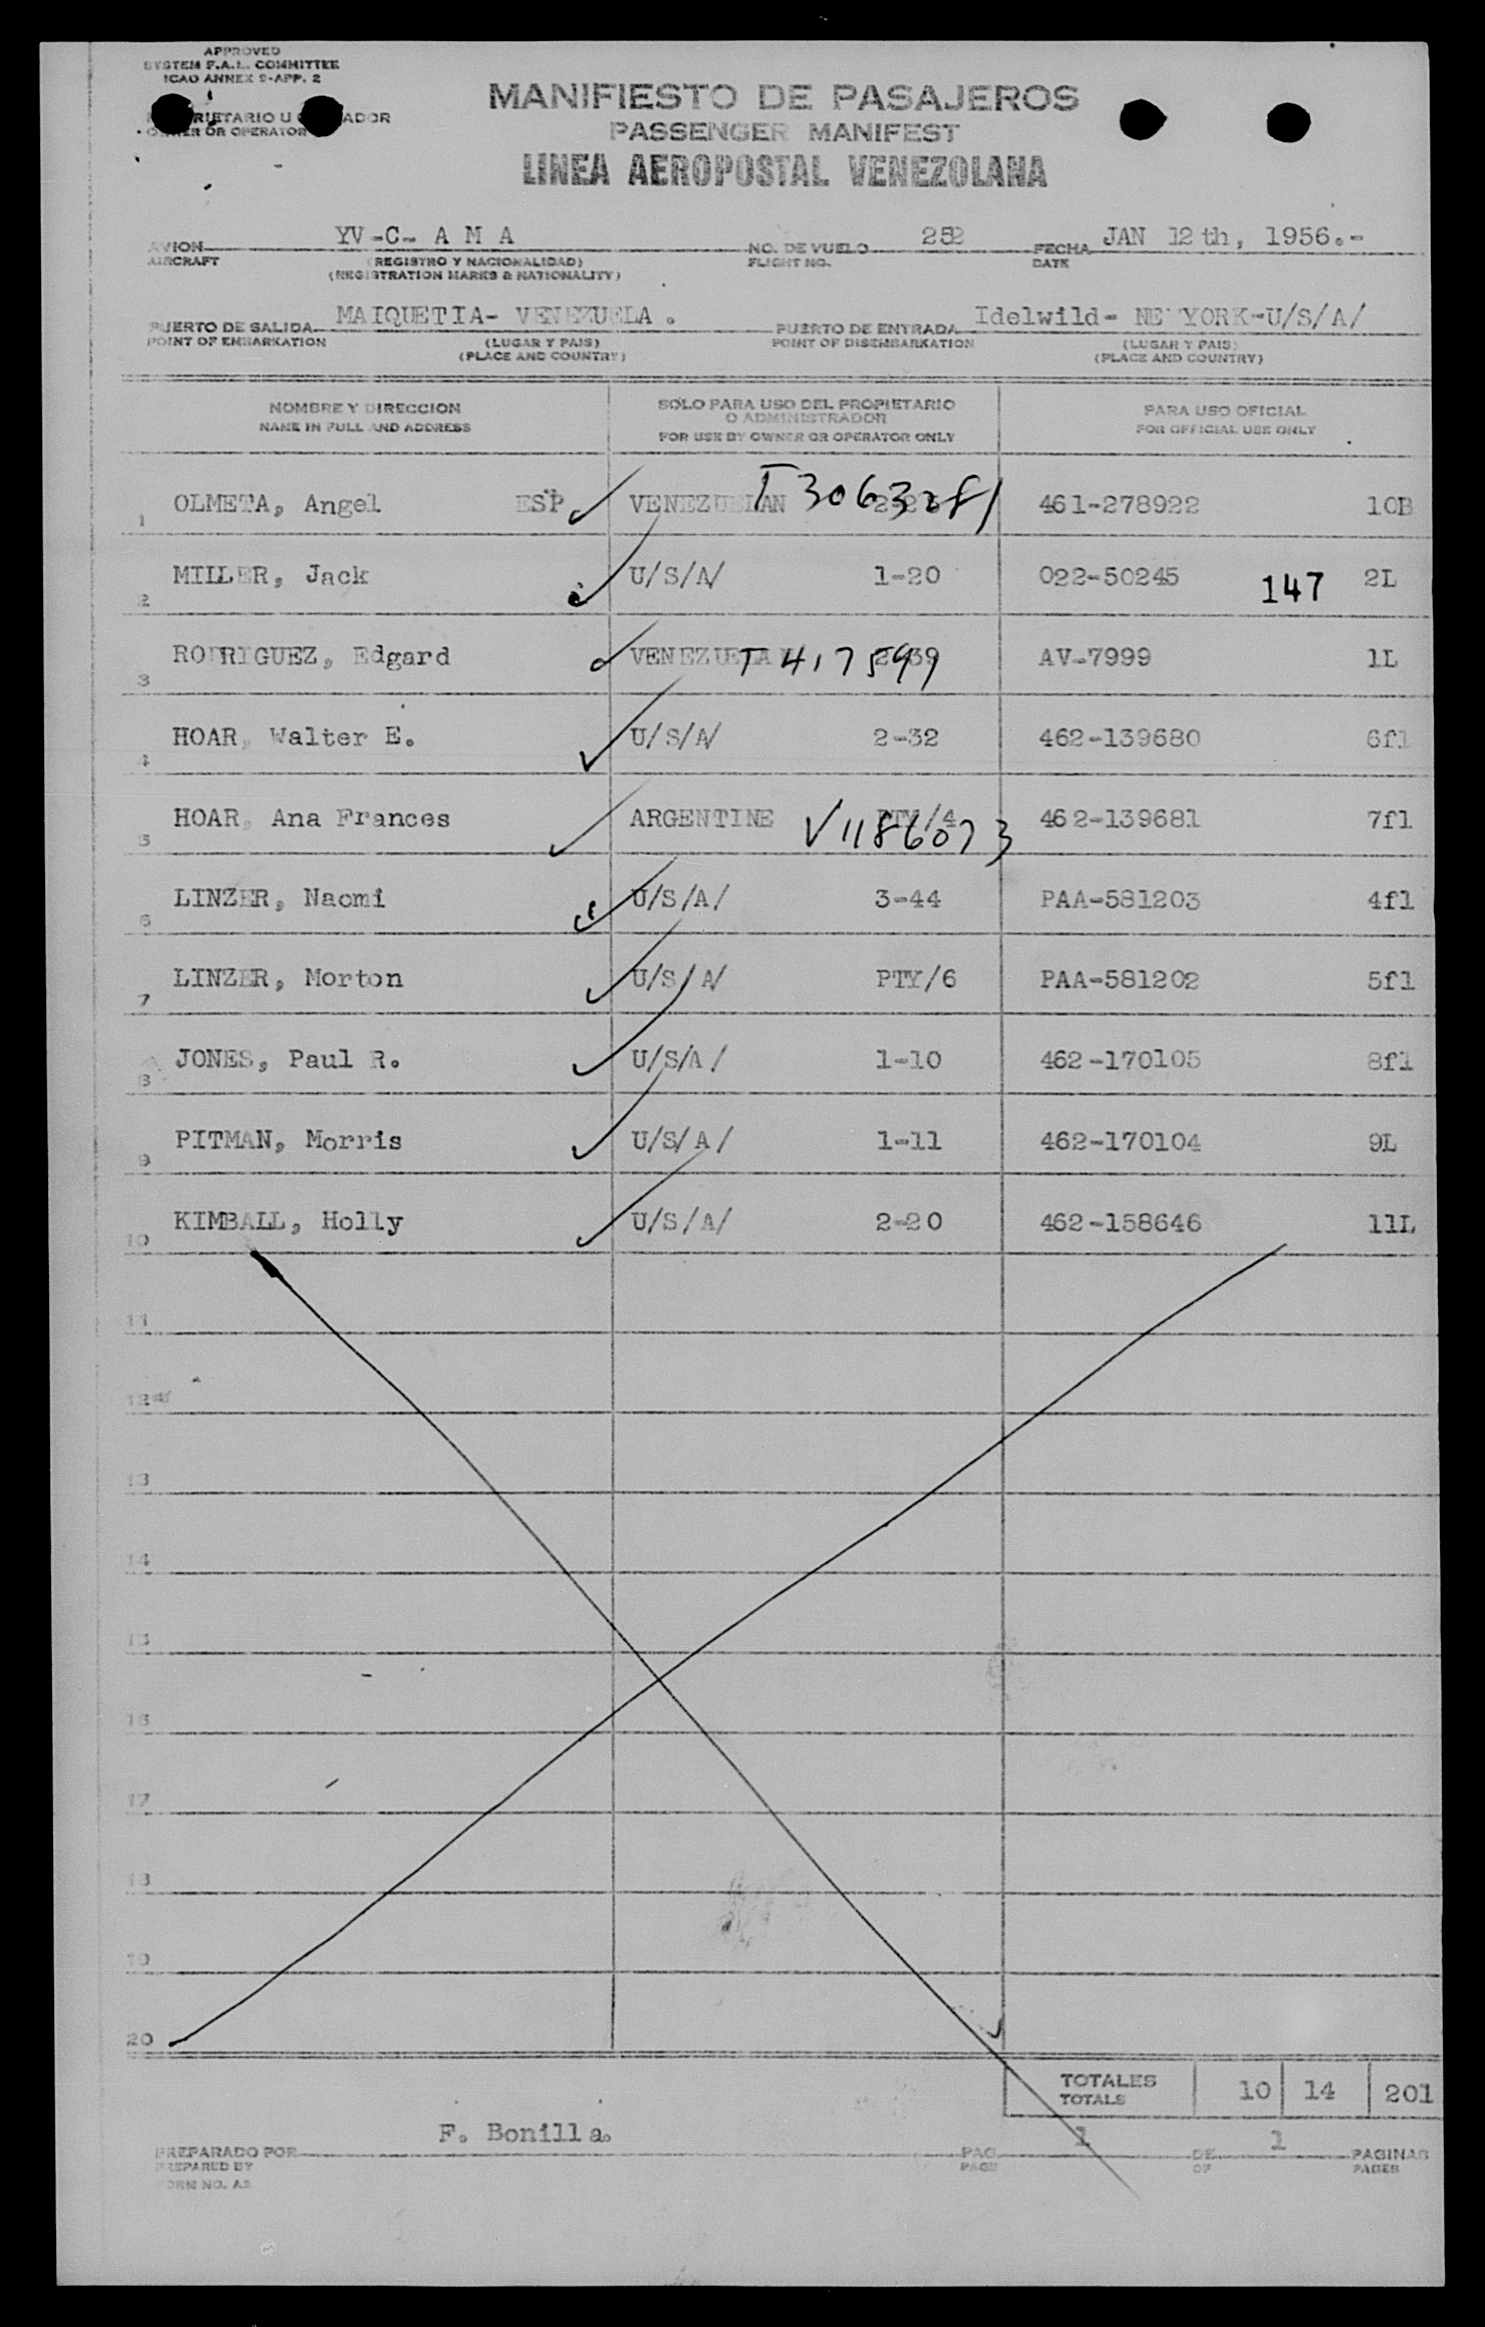 APPROVED
SYSTEM F.A.L. COMMITTEE
ICAO ANNEX 9-APP. 2
OR OPERATOR
MANIFIESTO DE PASAJEROS
PASSENGER MANIFEST
LINEA AEROPOSTAL VENEZOLANA
AVION YV-C- A M A NO. DE VUELO 252 FECHA JAN 12th, 1956.-
AIRCRAFT (REGISTRO Y NACIONALIDAD) FLIGHT NO. DATE
(REGISTRATION MARKS & NATIONALITY)
PUERTO DE SALIDA MAIQUETIA- VENEZUELA. PUERTO DE ENTRADA Idelwild- NE YORK-U/S/A/
POINT OF EMBARKATION (LUGAR Y PAIS) POINT OF DISEMBARKATION (LUGAR Y PAIS)
(PLACE AND COUNTRY) (PLACE AND COUNTRY)
NOMBRE Y DIRECCION SOLO PARA USO DEL PROPIETARIO PARA USO OFICIAL
O ADMINISTRADOR
NAME IN FULL AND ADDRESS FOR USE BY OWNER OR OPERATOR ONLY FOR OFFICIAL USE ONLY
1 OLMETA, Angel ESP. VENEZUELAN 461-278922 10B
2 MILLER, Jack U/S/A/ 1-20 022-50245 147 2L
3 RODRIGUEZ, Edgard VENEZUELA T417599 AV-7999 1L
4 HOAR, Walter E. U/S/A/ 2-32 462-139680 6fl
5 HOAR, Ana Frances ARGENTINE PTY/4 V1186073 462-139681 7fl
6 LINZER, Naomi U/S/A/ 3-44 PAA-581203 4fl
7 LINZER, Morton U/S/A/ PTY/6 PAA-581202 5fl
8 JONES, Paul R. U/S/A/ 1-10 462-170105 8fl
9 PITMAN, Morris U/S/A/ 1-11 462-170104 9L
10 KIMBALL, Holly U/S/A/ 2-20 462-158646 11L
11
12
13
14
15
16
17
18
19
20
TOTALES 10 14 201
TOTALS
PREPARADO POR F. Bonilla. PAG. 1 DE 1 PAGINAS
PREPARED BY PAGE OF PAGES
FORM NO. A2